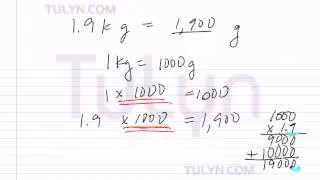 TULYN.COM
1.9 kg = 1,900 g
1 kg = 1000 g
Tulyn
1 x 1000 = 1000
1.9 x 1000 = 1,900
1000
x 1.9
9000
+ 10000
19000
TULYN.COM